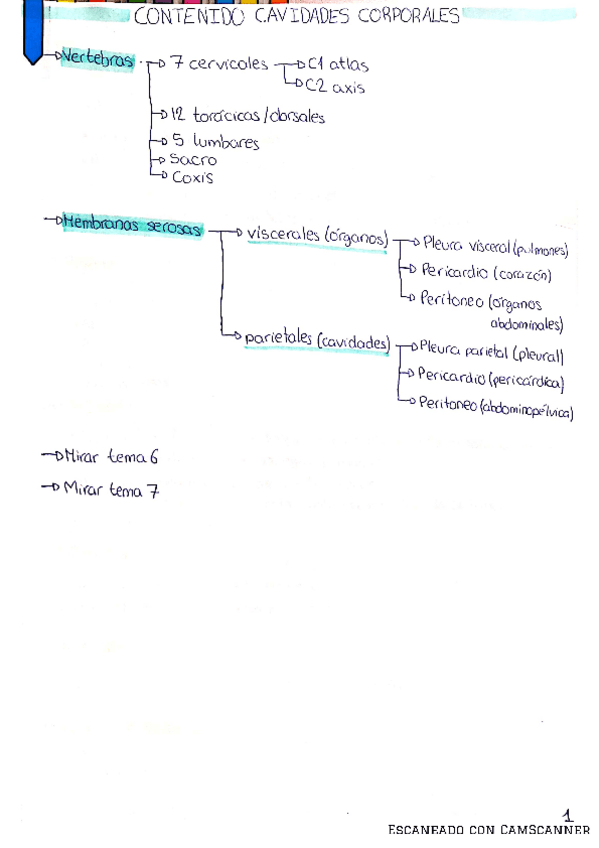 CONTENIDO CAVIDADES CORPORALES
Vertebras
7 cervicales
C1 atlas
C2 axis
12 torácicas/dorsales
5 lumbares
Sacro
Coxis
Membranas serosas
viscerales (órganos)
Pleura visceral (pulmones)
Pericardio (corazón)
Peritoneo (órganos
abdominales)
parietales (cavidades)
Pleura parietal (pleural)
Pericardio (pericárdica)
Peritoneo (abdominopélvica)
Mirar tema 6
Mirar tema 7
1
ESCANEADO CON CAMSCANNER